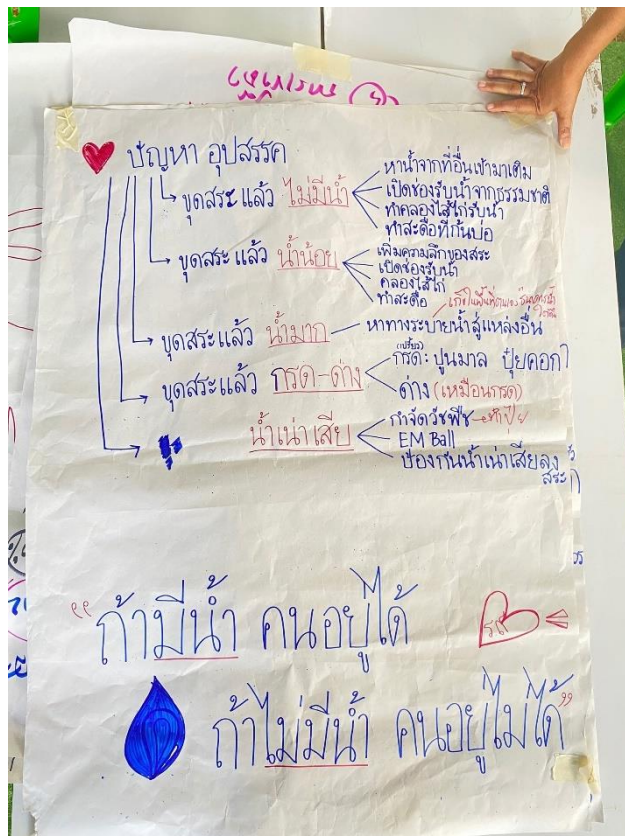 ปัญหา อุปสรรค
ขุดสระแล้ว ไม่มีน้ำ
หาน้ำจากที่อื่นเข้ามาเติม
เปิดช่องรับน้ำจากธรรมชาติ
ทำคลองไส้ไก่รับน้ำ
ทำสะดือที่ก้นบ่อ
ขุดสระ แล้ว น้ำน้อย
เพิ่มความลึกของสระ
เปิดช่องรับน้ำ
คลองไส้ไก่
ทำสะดือ
ขุดสระแล้ว น้ำมาก
หาทางระบายน้ำสู่แหล่งอื่น
ขุดสระแล้ว กรด-ด่าง
(เปรี้ยว)
กรด: ปูนมาล ปุ๋ยคอก
ด่าง (เหมือนกรด)
น้ำเน่าเสีย
กำจัดวัชพืช ทำปุ๋ย
EM Ball
ป้องกันน้ำเน่าเสียลง
สระ
"ถ้ามีน้ำ คนอยู่ได้
ถ้าไม่มีน้ำ คนอยู่ไม่ได้"